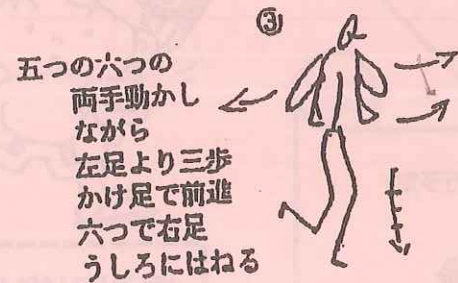 ③
五つの六つの
両手動かし
ながら
左足より三歩
かけ足で前進
六つで右足
うしろにはねる